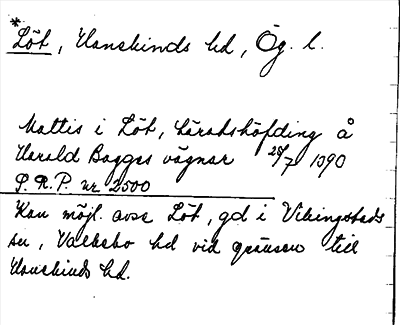 *
Löt, Hanekinds hd, Ög. l.
Mattis i Löt, häradshöfding å
Harald Bagges vägnar 28/7 1390
S. R. P. nr 2500
Kan möjl. avse Löt, gd i Vikingstads
sn, Valkebo hd vid gränsen till
Hanekinds hd.